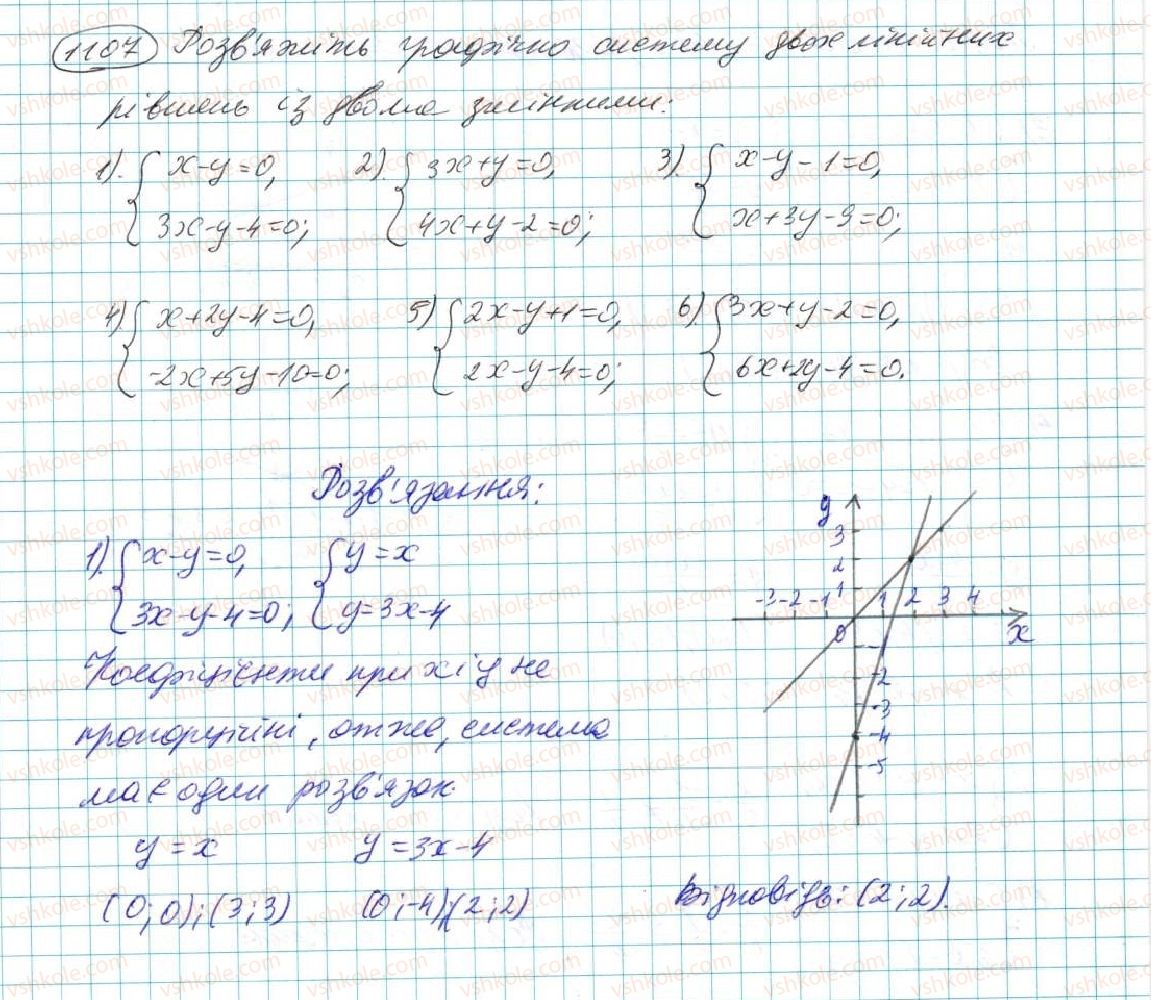 1107 Розв'яжіть графічно систему двох лінійних
рівнянь із двома змінними:
1). { x-y=0, 2). { 3x+y=0, 3). { x-y-1=0,
3x-y-4=0; 4x+y-2=0; x+3y-9=0;
4) { x+2y-4=0, 5) { 2x-y+1=0, 6). { 3x+y-2=0,
-2x+5y-10=0; 2x-y-4=0; 6x+2y-4=0.
Розв'язання:
1). { x-y=0, { y=x
3x-y-4=0; y=3x-4
Коефіцієнти при x і y не
пропорційні, отже, система
має один розв'язок.
y=x y=3x-4
(0;0);(3;3) (0;-4);(2;2)
y
3
2
1
-3 -2 -1 1 2 3 4
0 x
-1
-2
-3
-4
-5
Відповідь: (2;2).
vshkole.com